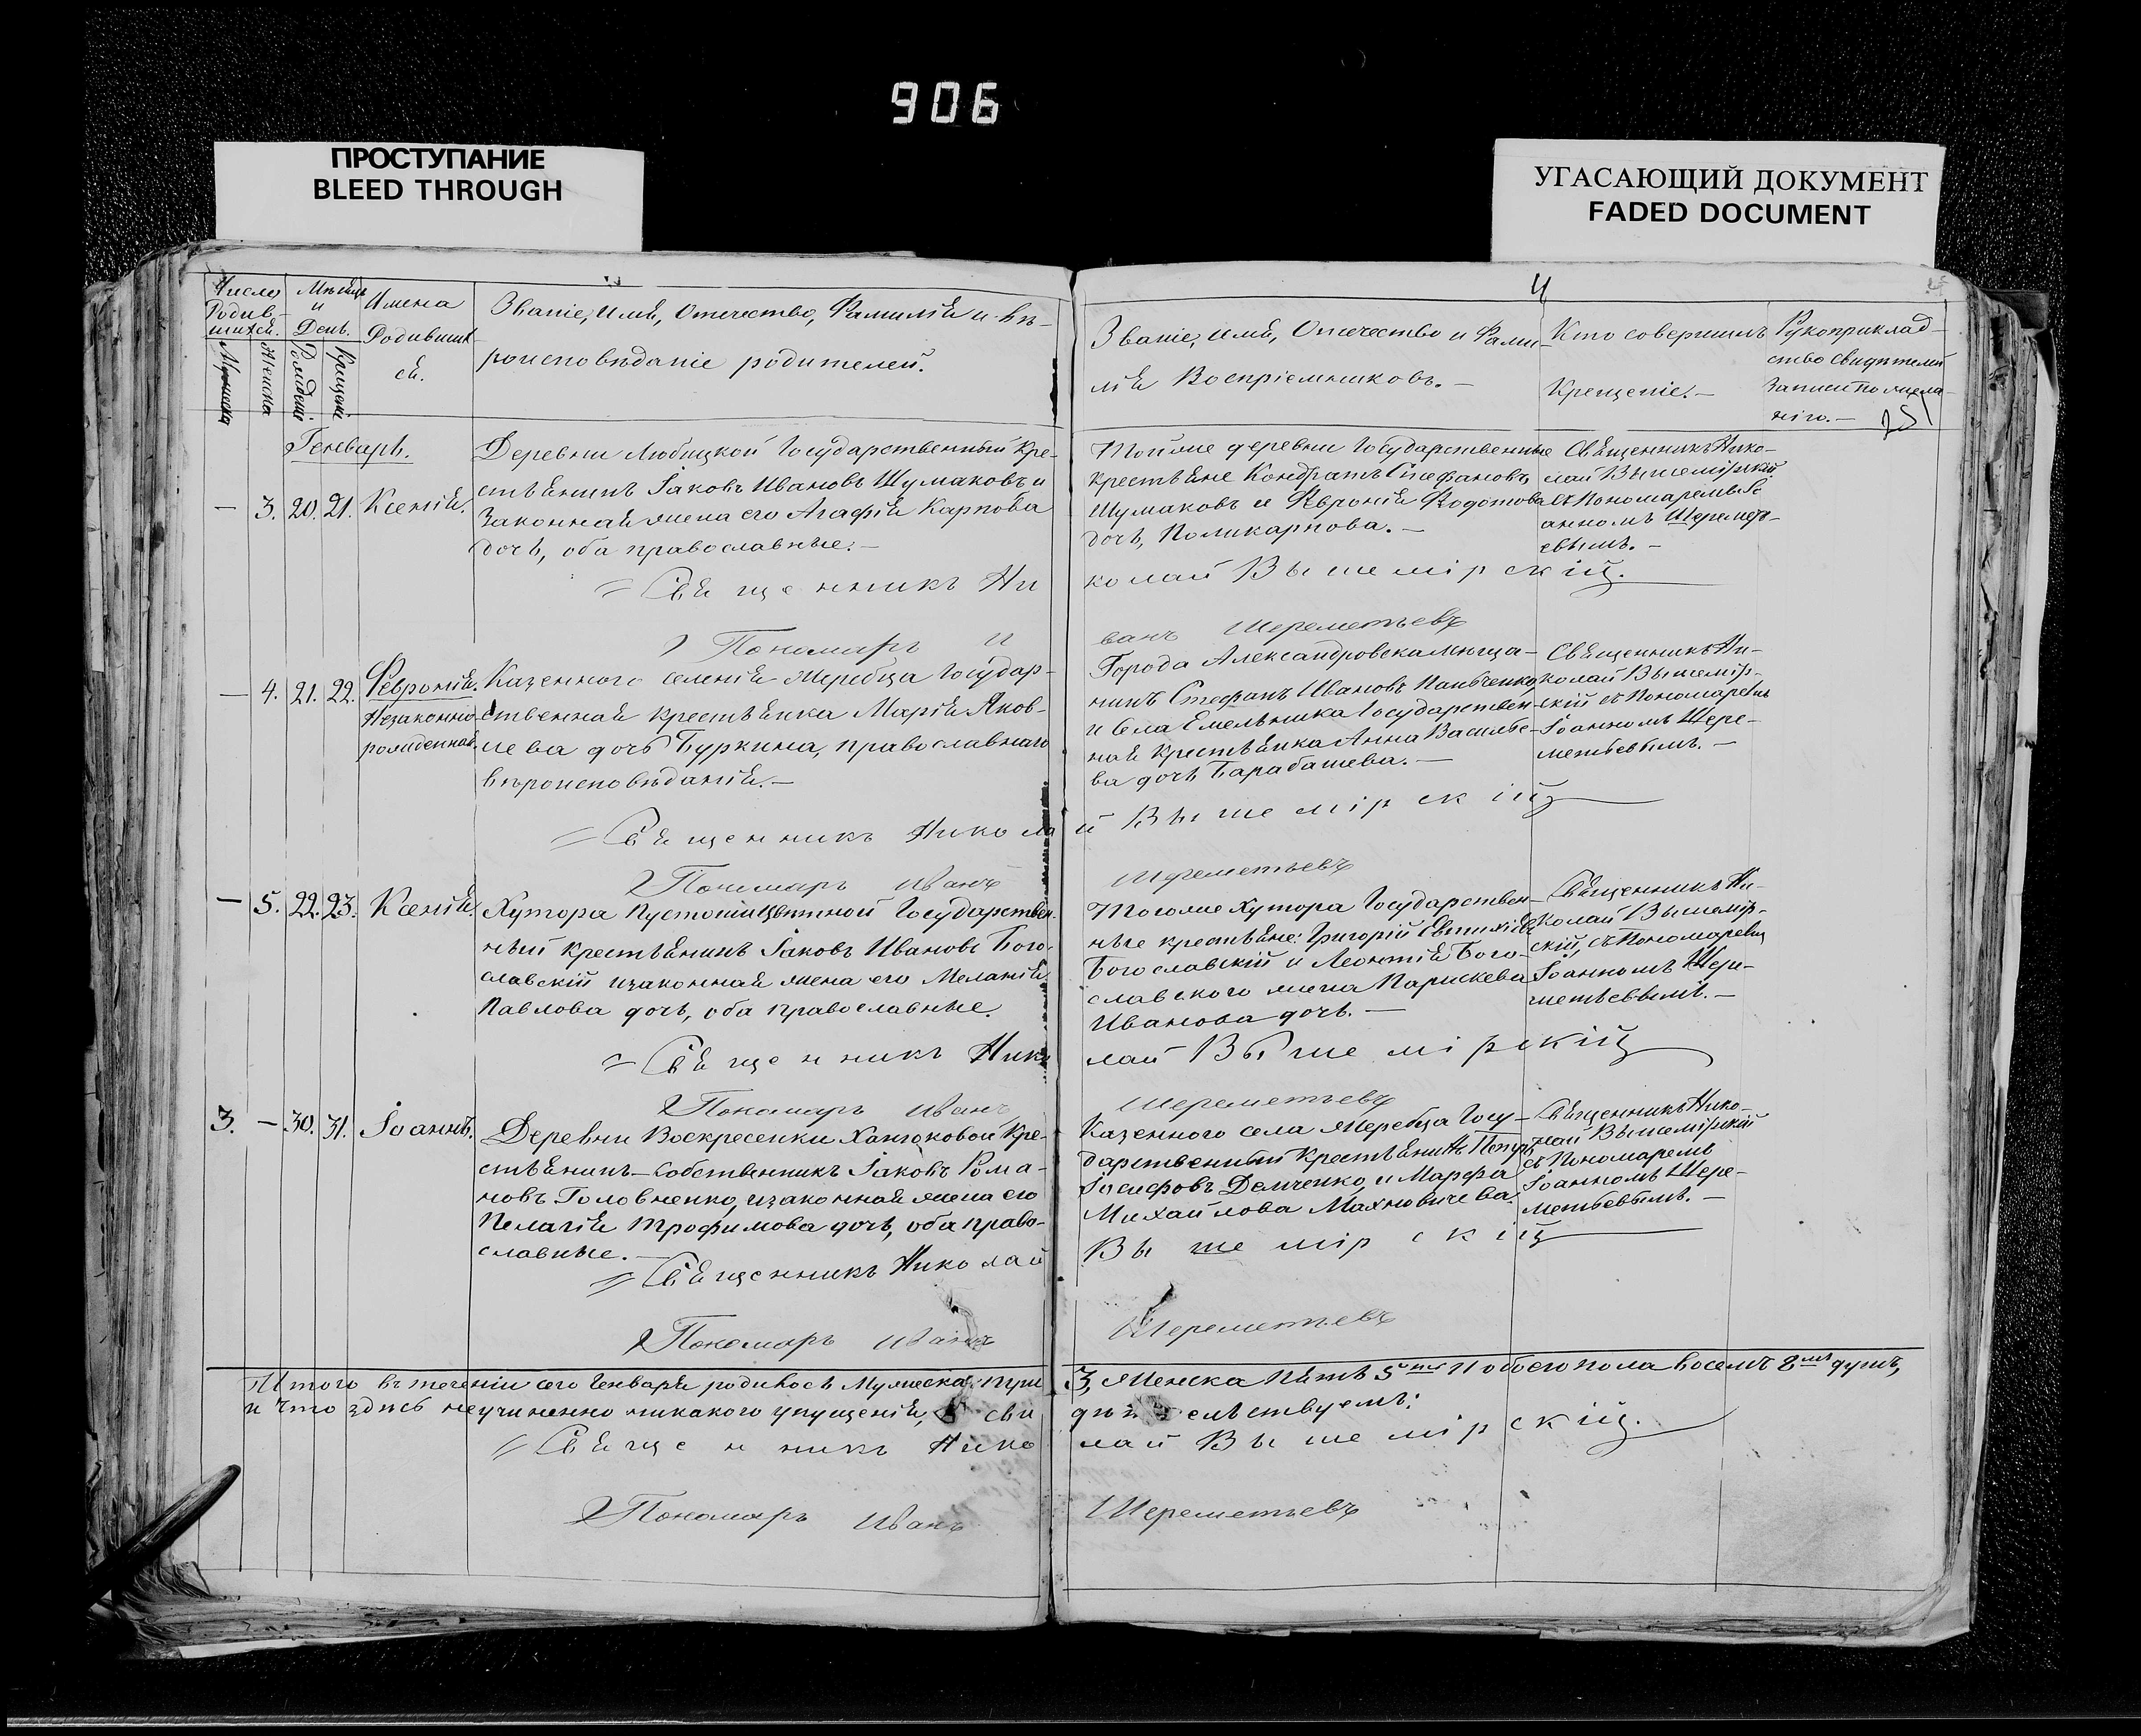 906
ПРОСТУПАНИЕ
BLEED THROUGH
УГАСАЮЩИЙ ДОКУМЕНТ
FADED DOCUMENT
Число
Родив-
шихся.
Мѣсяцъ
и
День.
Имена
Родивших
ся.
Званіе, имя, Отечество, Фамилія и вѣ-
роисповѣданіе родителей.
Мужеска
Женска
Рожденія
Крещенія
4
Званіе, имя, Отечество и Фами-
лія Воспріемниковъ. —
Кто совершилъ
Крещеніе. —
Рукоприклад-
ство свидѣтелей
записи по жела-
нію. —
Генварь.
— 3. 20. 21. Ксенія.
Деревни Любицкой Государственный кре-
стьянинъ Іаковъ Ивановъ Шумаковъ и
законная жена его Агафія Карпова
дочь, оба православные. —
Тойже деревни Государственные
крестьяне Кондратъ Стефановъ
Шумаковъ и Феронія Федотова
дочь, Поликарпова. —
Священникъ Нико-
лай Вышемірскій
съ Пономаремъ Іо
анномъ Шереметь-
евымъ. —
Священникъ Ни
колай Вышемірскій.
Пономарь И
ванъ Шереметьевъ
— 4. 21. 22. Февронія.
Незаконно-
рожденная.
Казеннаго селенія Жеребца Государ-
ственная крестьянка Марія Яков-
лева дочь Буркина, православнаго
вѣроисповѣданія. —
Города Александровска мѣща-
нинъ Стефанъ Ивановъ Панченко,
и села Емельника Государствен-
ная крестьянка Анна Василье-
ва дочь Барабашева. —
Священникъ Ни-
колай Вышемір-
скій съ Пономаремъ
Іоанномъ Шере-
метьевымъ. —
Священникъ Никола
й Вышемірскій
Пономарь Иванъ
Шереметьевъ
— 5. 22. 23. Ксенія.
Хутора Пустошицвѣтной Государствен-
ный крестьянинъ Іаковъ Ивановъ Бого-
славскій изаконная жена его Меланія
Павлова дочь, оба православные.
Тогоже Хутора Государствен-
ные крестьяне: Григорій
Богославскій и Леонтія Бого-
славского жена Парискева
Иванова дочь. —
Священникъ Ни-
колай Вышемір-
скій, съ Пономаремъ
Іоанномъ Шере-
метьевымъ. —
Священникъ Нико
лай Вышемірскій
Пономарь Иванъ
Шереметьевъ
3. — 30. 31. Іоаннъ.
Деревни Воскресенки Ханжоковой Кре-
стьянинъ-собственникъ Іаковъ Рома-
новъ Головненко, изаконная жена его
Пелагія Трофимова дочь, оба право-
славные. —
Казенного села Жеребца Госу-
дарственный Крестьянинъ Петръ
Іосифовъ Демченко, и Марфа
Михайлова Махновичева.
Священникъ Нико-
лай Вышемірскій
съ Пономаремъ
Іоанномъ Шере-
метьевымъ. —
Священникъ Николай
Вышемірскій
Пономарь Иванъ
Шереметьевъ
Итого въ теченіи сего Генваря родилось Мужеска три
3, Женска пять 5ть И обоего пола восемь 8мь душъ,
и что здѣсь неучиненно никакого упущенія, сви
дѣтельствуемъ:
Священникъ Нико
лай Вышемірскій.
Пономарь Иванъ
Шереметьевъ